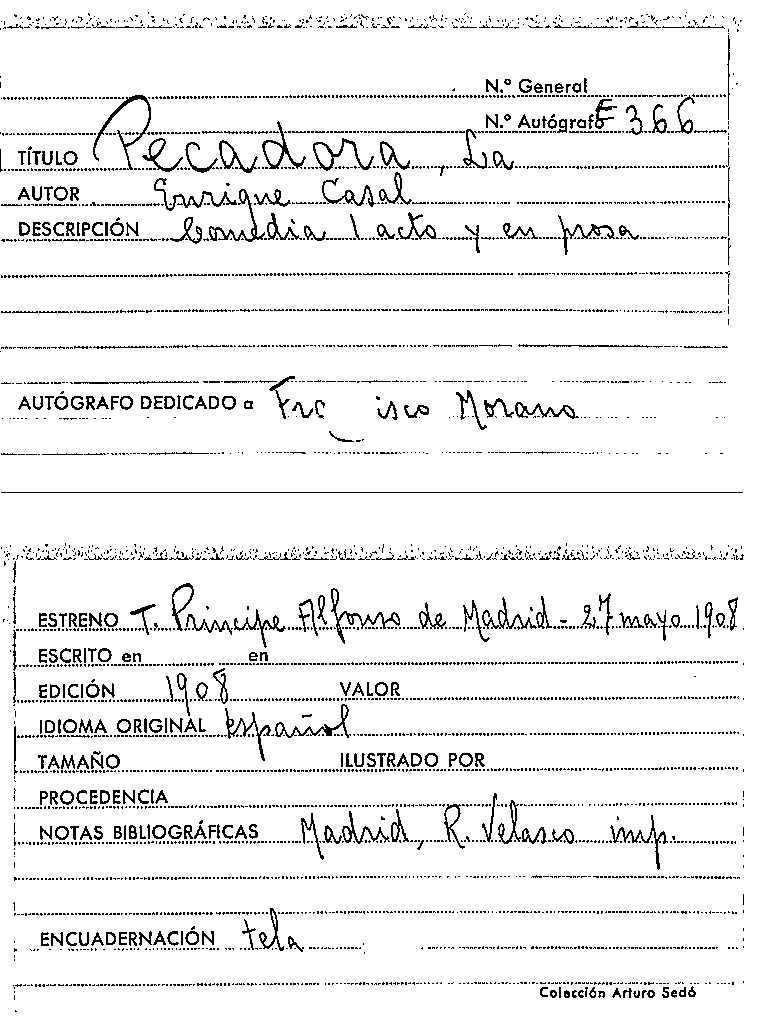 N.º General
N.º Autógrafo E 366
TÍTULO Pecadora, La
AUTOR Enrique Casal
DESCRIPCIÓN Comedia 1 acto y en prosa
AUTÓGRAFO DEDICADO a Frc isco Morano
ESTRENO T. Principe Alfonso de Madrid - 27 mayo 1908
ESCRITO en en
EDICIÓN 1908 VALOR
IDIOMA ORIGINAL español
TAMAÑO ILUSTRADO POR
PROCEDENCIA
NOTAS BIBLIOGRÁFICAS Madrid, R. Velasco imp.
ENCUADERNACIÓN tela
Colección Arturo Sedó